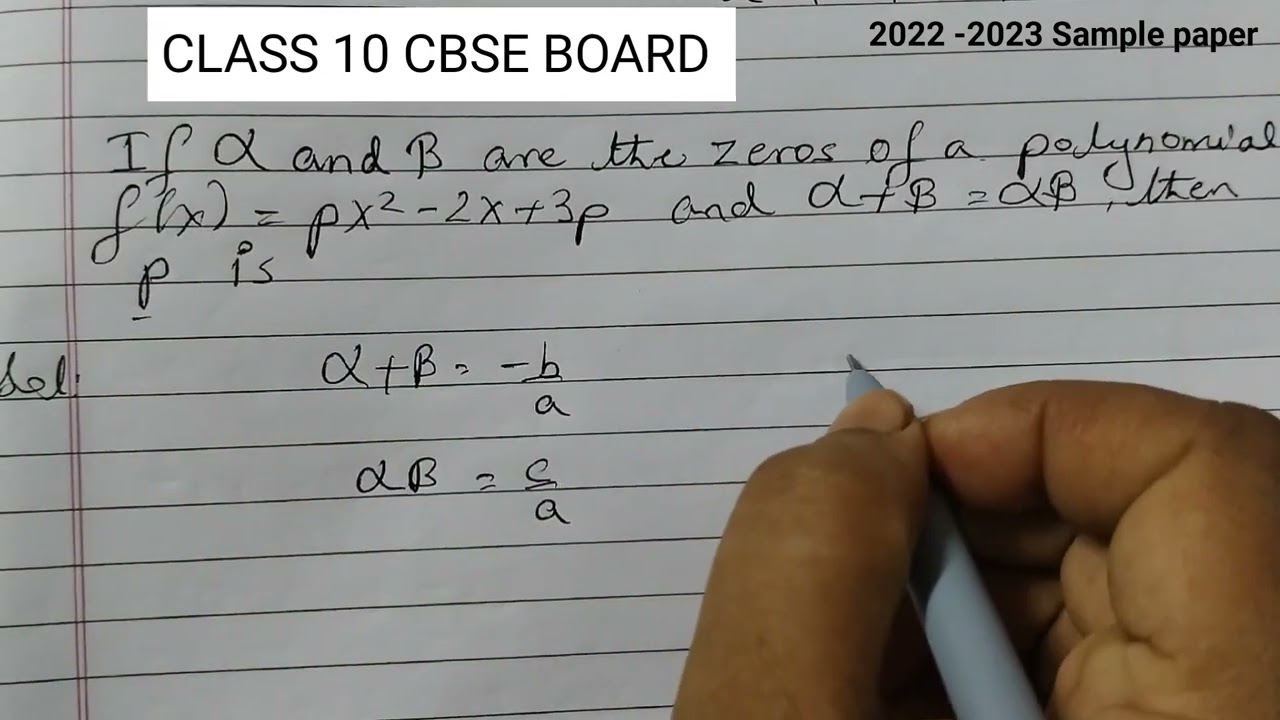 CLASS 10 CBSE BOARD
2022 -2023 Sample paper
If α and β are the zeros of a polynomial
f(x) = px² - 2x + 3p and α + β = αβ, then
p is
Sol:
α + β = -b/a
αβ = c/a